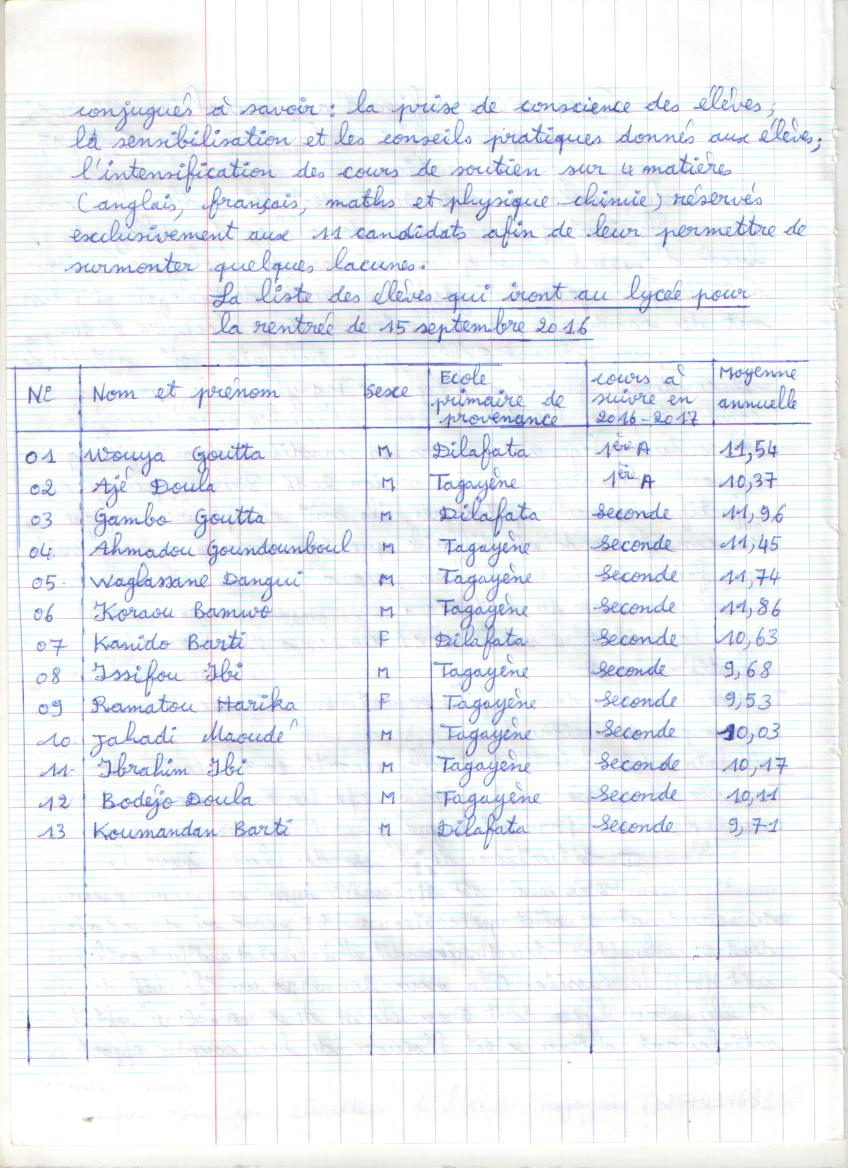 conjugués à savoir : la prise de conscience des élèves ;
la sensibilisation et les conseils pratiques donnés aux élèves ;
l'intensification des cours de soutien sur 4 matières
(anglais, français, maths et physique chimie) réservés
exclusivement aux 11 candidats afin de leur permettre de
surmonter quelques lacunes.
La liste des élèves qui iront au lycée pour
la rentrée de 15 septembre 2016
N° Nom et prénom Sexe Ecole primaire de provenance cours à suivre en 2016-2017 Moyenne annuelle
01 Wouya Goutta M Dilafata 1ère A 11,54
02 Ajé Doula M Tagayène 1ère A 10,37
03 Gambo Goutta M Dilafata seconde 11,96
04 Ahmadou Goundounboul M Tagayène seconde 11,45
05 Waglassane Dangui M Tagayène seconde 11,74
06 Koraou Bamwo M Tagayène seconde 11,86
07 Kanido Barti F Dilafata seconde 10,63
08 Issifou Ibi M Tagayène seconde 9,68
09 Ramatou Harika F Tagayène seconde 9,53
10 Jahadi Maoudé M Tagayène seconde 10,03
11 Ibrahim Ibi M Tagayène seconde 10,17
12 Bodéjo Doula M Tagayène seconde 10,11
13 Koumandan Barti M Dilafata seconde 9,71